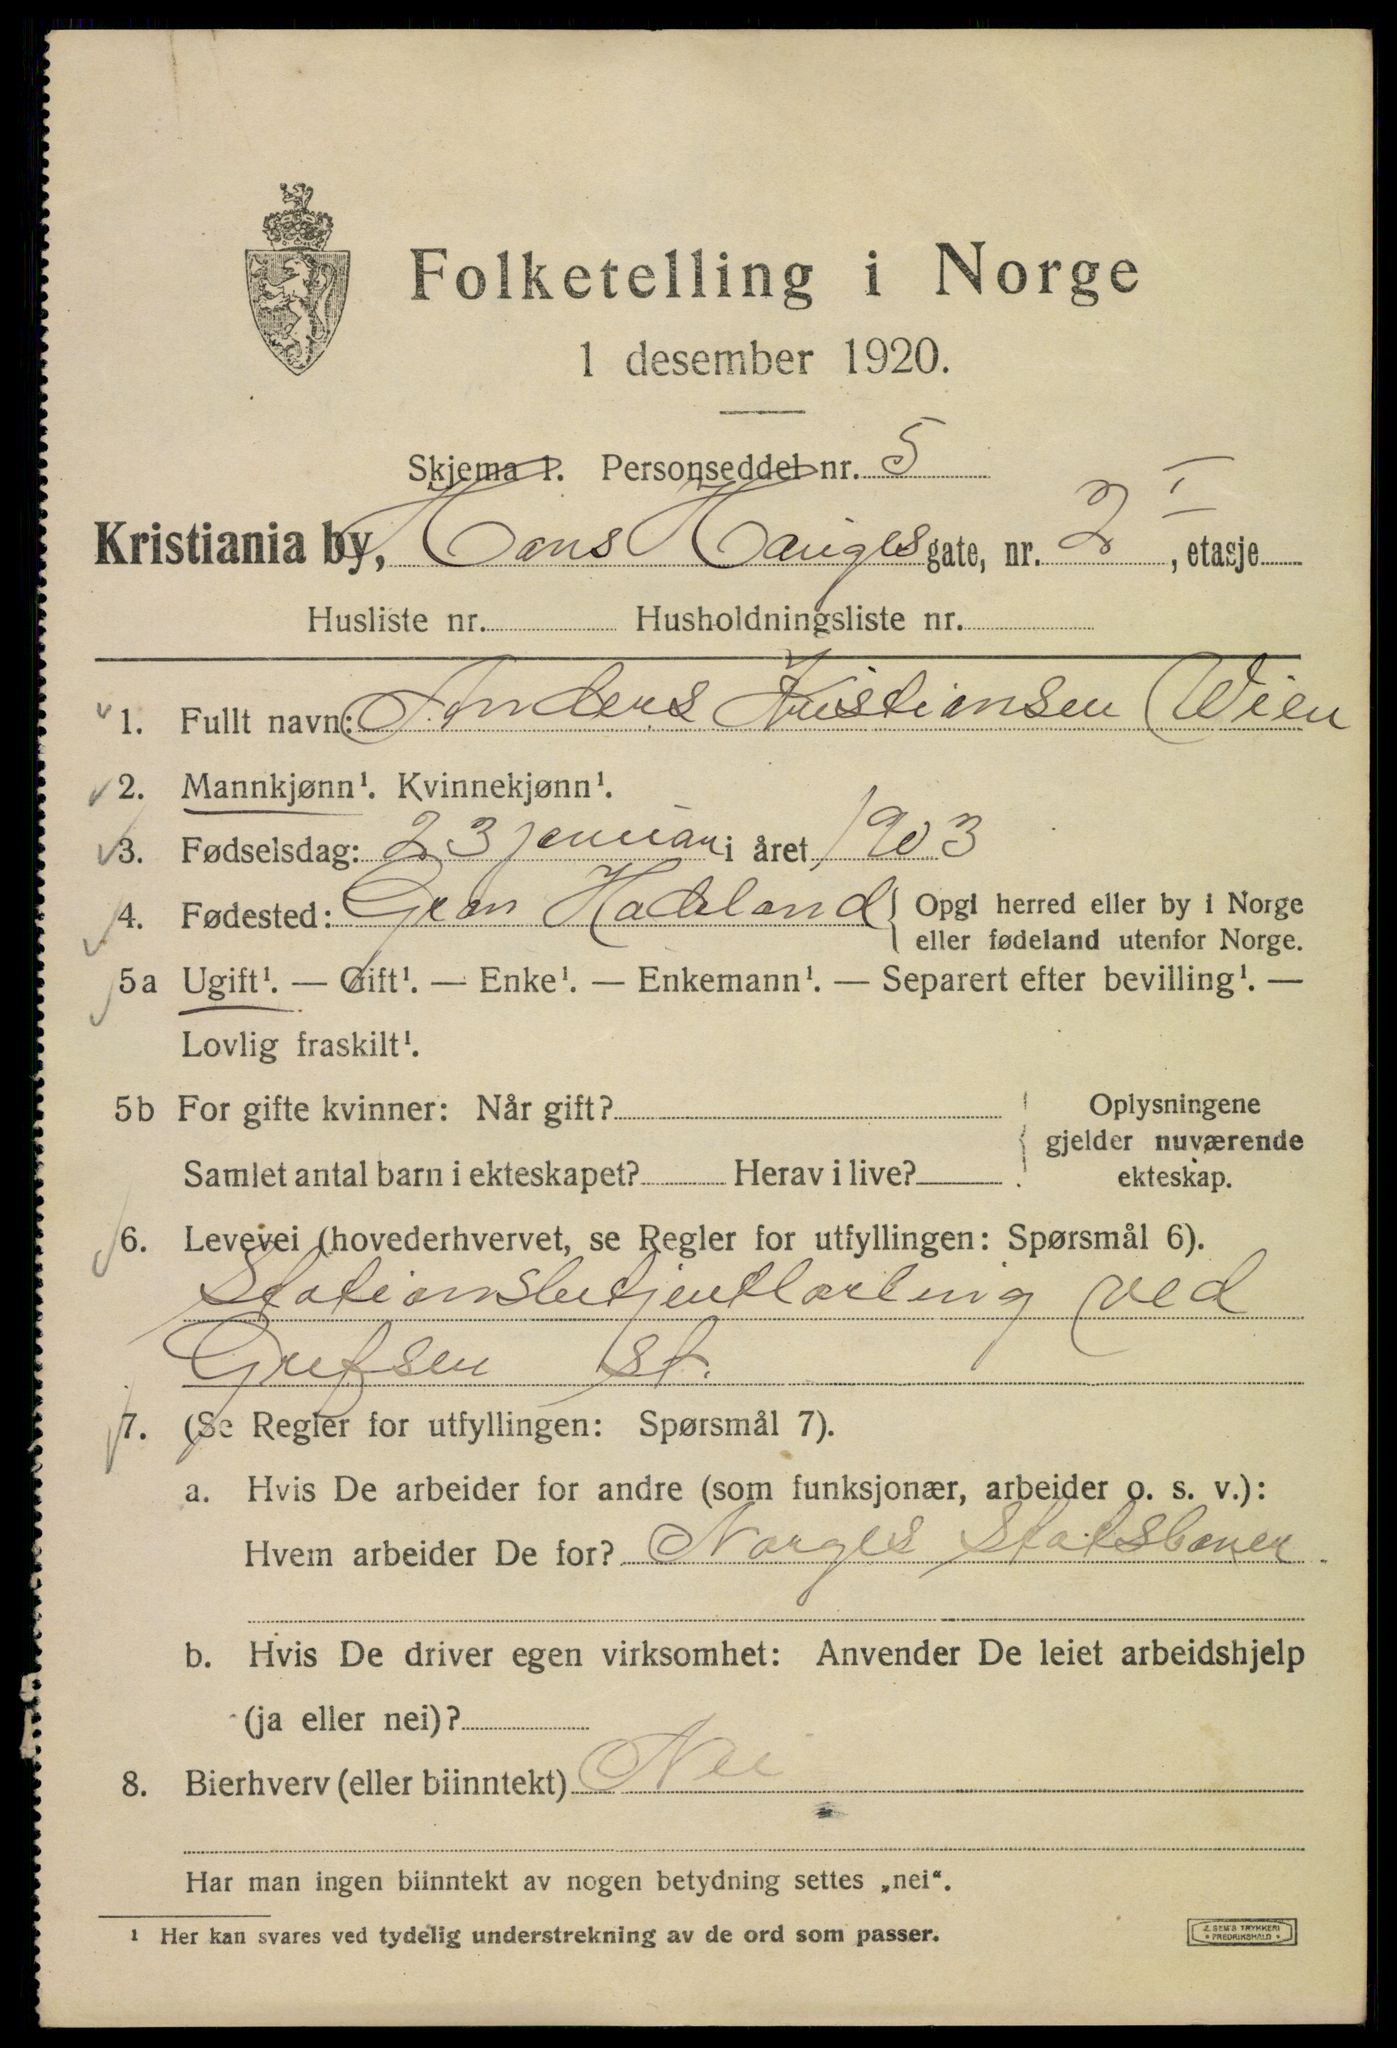 Folketelling i Norge
1 desember 1920.
Skjema 1. Personseddel nr. 5
Kristiania by, Hans Hauges gate, nr. 2 I, etasje
Husliste nr. Husholdningsliste nr.
1. Fullt navn: Anders Kristiansen Wien
2. Mannkjønn¹. Kvinnekjønn¹.
3. Fødselsdag: 23 januar i året 1903
4. Fødested: Gran Hadeland { Opgi herred eller by i Norge
eller fødeland utenfor Norge.
5a Ugift¹. — Gift¹. — Enke¹. — Enkemann¹. — Separert efter bevilling¹. —
Lovlig fraskilt¹.
5b For gifte kvinner: Når gift? Oplysningene
gjelder nuværende
Samlet antal barn i ekteskapet? Herav i live? ekteskap.
6. Levevei (hovederhvervet, se Regler for utfyllingen: Spørsmål 6).
Stationsbetjentlærling ved
Grefsen st.
7. (Se Regler for utfyllingen: Spørsmål 7).
a. Hvis De arbeider for andre (som funksjonær, arbeider o. s. v.):
Hvem arbeider De for? Norges Statsbaner
b. Hvis De driver egen virksomhet: Anvender De leiet arbeidshjelp
(ja eller nei)?
8. Bierhverv (eller biinntekt) Nei
Har man ingen biinntekt av nogen betydning settes „nei“.
¹ Her kan svares ved tydelig understrekning av de ord som passer.
E. SEM'S TRYKKERI
FREDRIKSHALD